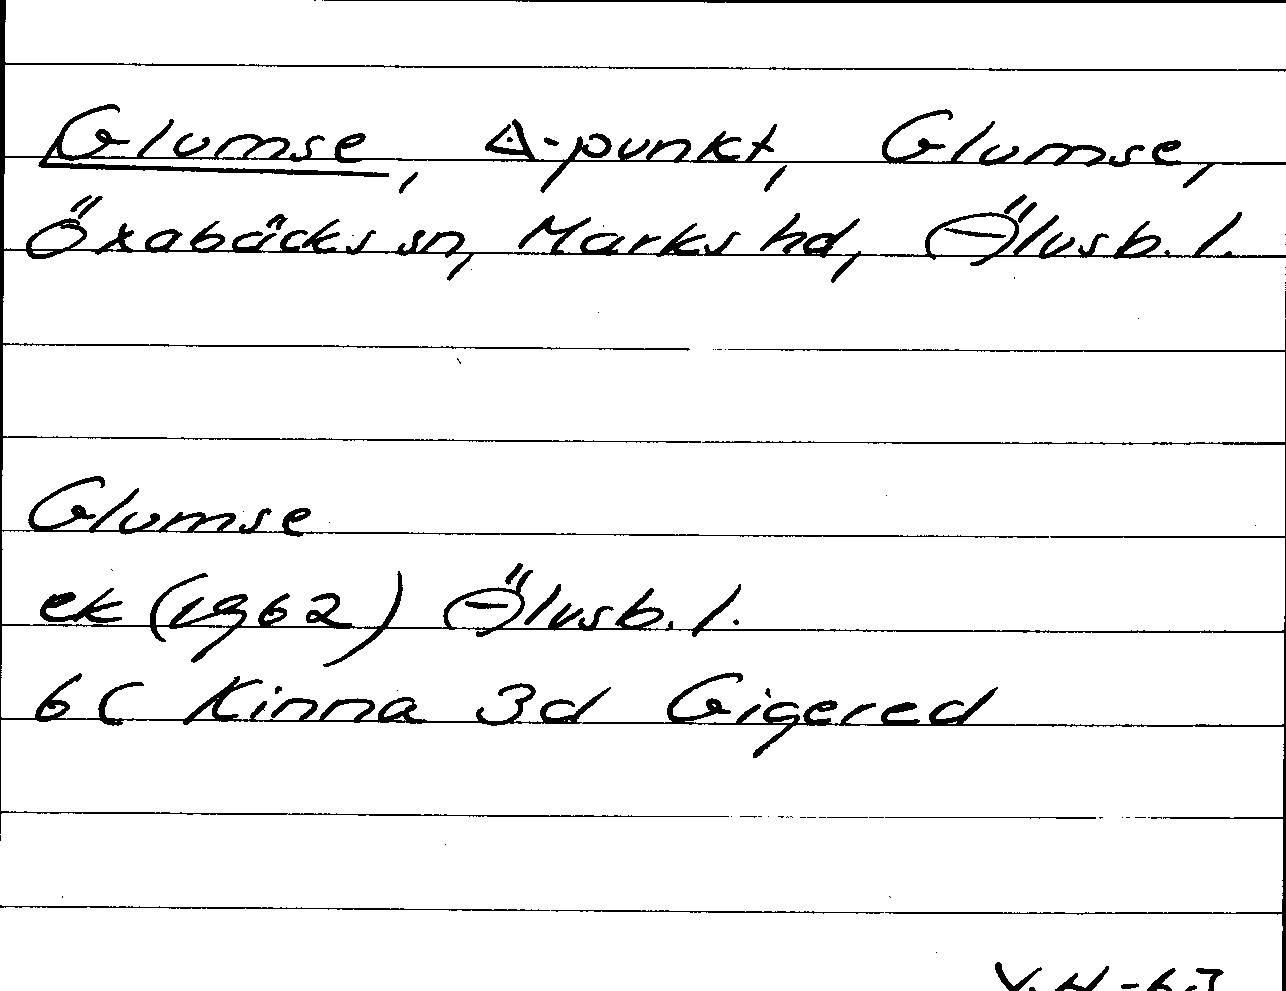 Glumse, ∆-punkt, Glumse,
Öxabäcks sn, Marks hd, Älvsb. l.
Glumse
ek (1962) Älvsb. l.
6C Kinna 3d Gigered